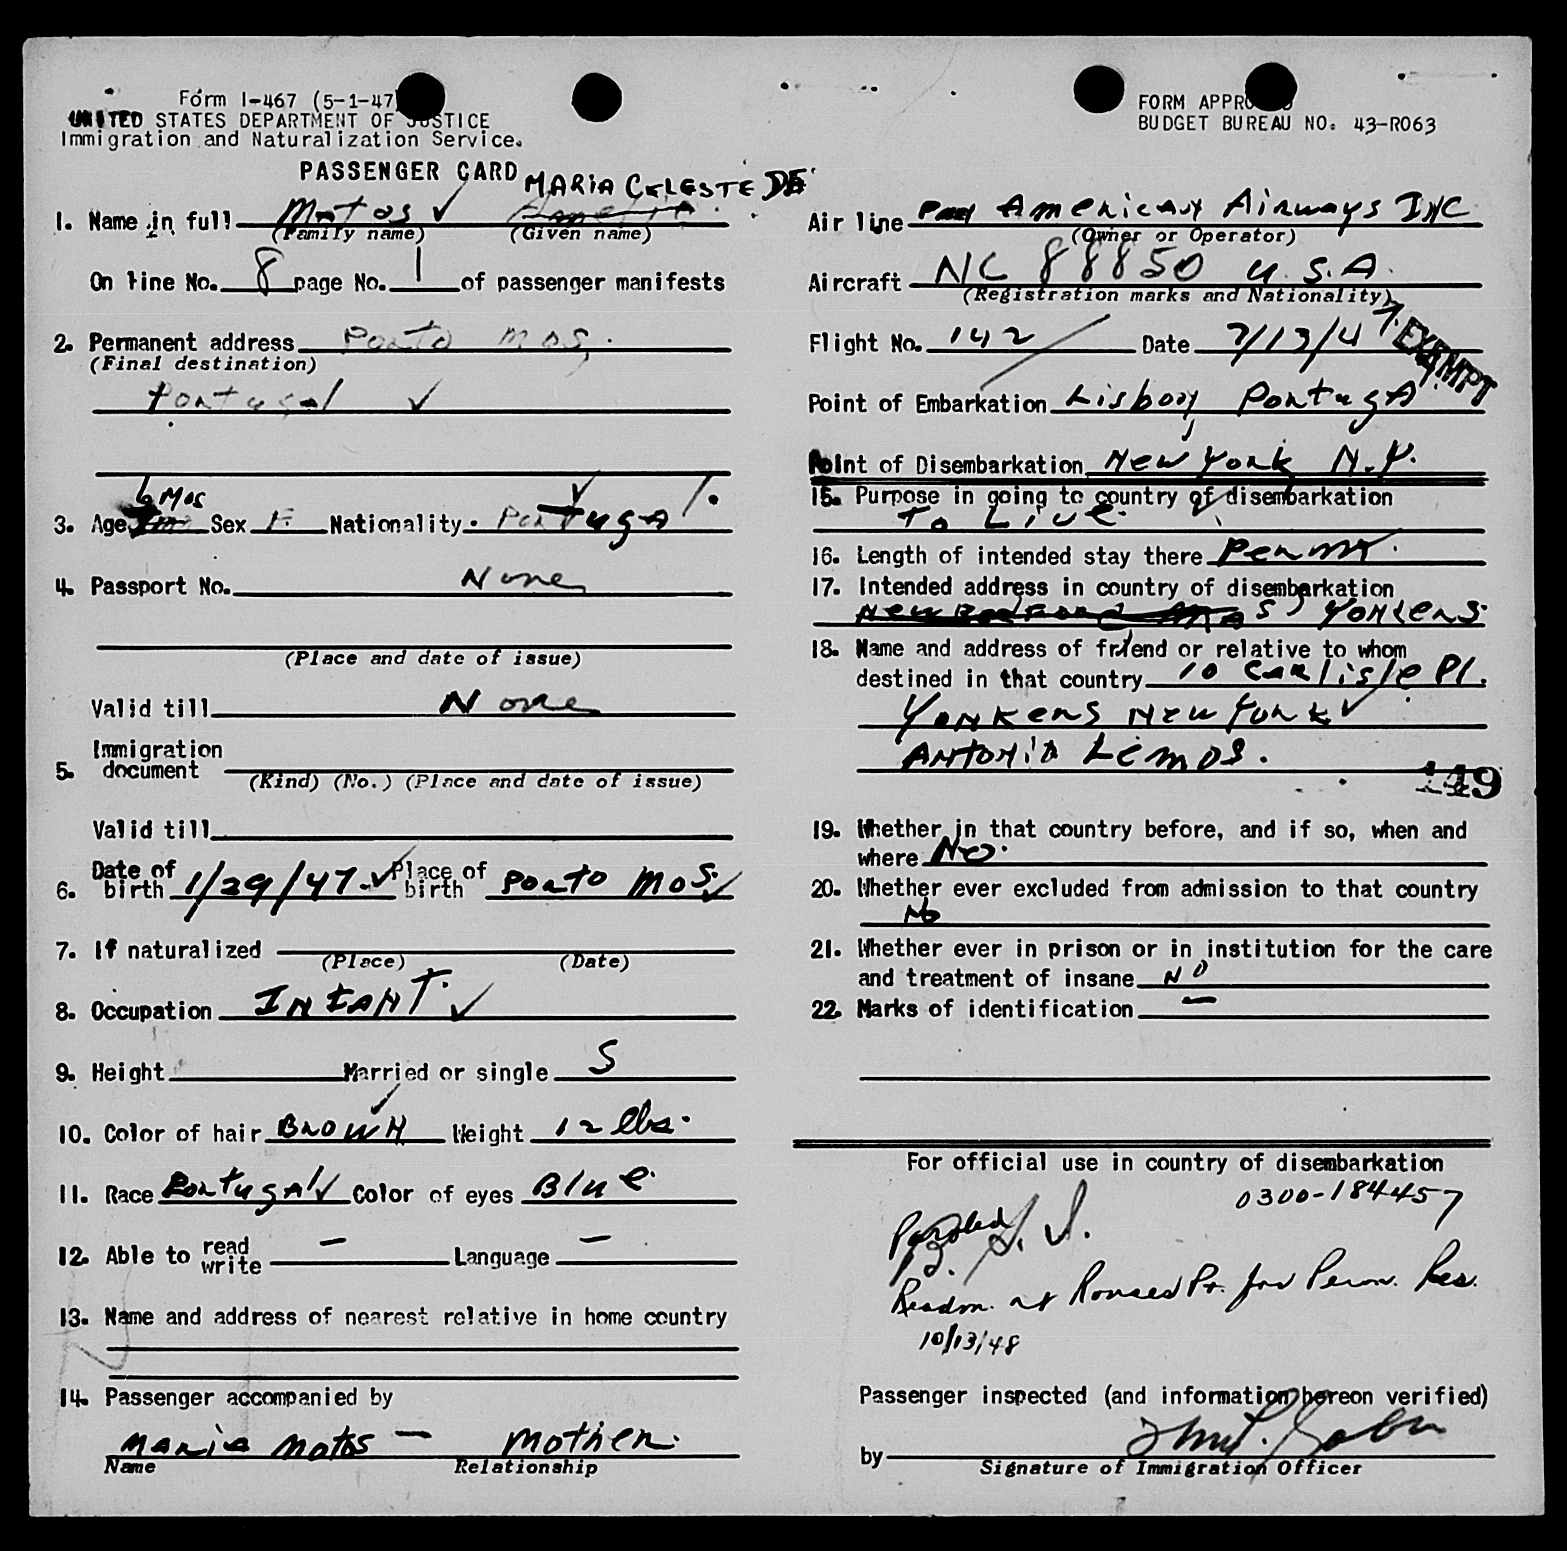 Form I-467 (5-1-47)
UNITED STATES DEPARTMENT OF JUSTICE
Immigration and Naturalization Service.
PASSENGER CARD
MARIA CELESTE DE
1. Name in full Matos
(Family name) (Given name)
On line No. 8 page No. 1 of passenger manifests
2. Permanent address Porto Mos.
(Final destination)
Portugal
6 Mos
3. Age Sex F. Nationality. Portugal.
4. Passport No. None
(Place and date of issue)
Valid till None
5. Immigration document
(Kind) (No.) (Place and date of issue)
Valid till
6. Date of birth 1/29/47. Place of birth Porto Mos.
7. If naturalized
(Place) (Date)
8. Occupation INFANT.
9. Height Married or single S
10. Color of hair Brown Weight 12 lbs.
11. Race Portugal Color of eyes Blue.
12. Able to read write — Language —
13. Name and address of nearest relative in home country
14. Passenger accompanied by
Maria Matos — Mother.
Name Relationship
FORM APPROVED
BUDGET BUREAU NO. 43-R063
Air line Pan American Airways INC
(Owner or Operator)
Aircraft NC 88850 U.S.A.
(Registration marks and Nationality)
Flight No. 142 Date 7/13/47.
EXEMPT
Point of Embarkation Lisbon, Portugal.
Point of Disembarkation New York N.Y.
15. Purpose in going to country of disembarkation
To Live.
16. Length of intended stay there Permt.
17. Intended address in country of disembarkation
New Bedford Mas, Yonkers.
18. Name and address of friend or relative to whom
destined in that country 10 Carlisle Pl.
Yonkers New York
Antonio Lemos.
149
19. Whether in that country before, and if so, when and
where No.
20. Whether ever excluded from admission to that country
No
21. Whether ever in prison or in institution for the care
and treatment of insane No
22. Marks of identification —
For official use in country of disembarkation
0300-184457
Paroled
B. S. I.
Readm. at Rouses Pt. for Perm. Res.
10/13/48
Passenger inspected (and information hereon verified)
by
Signature of Immigration Officer